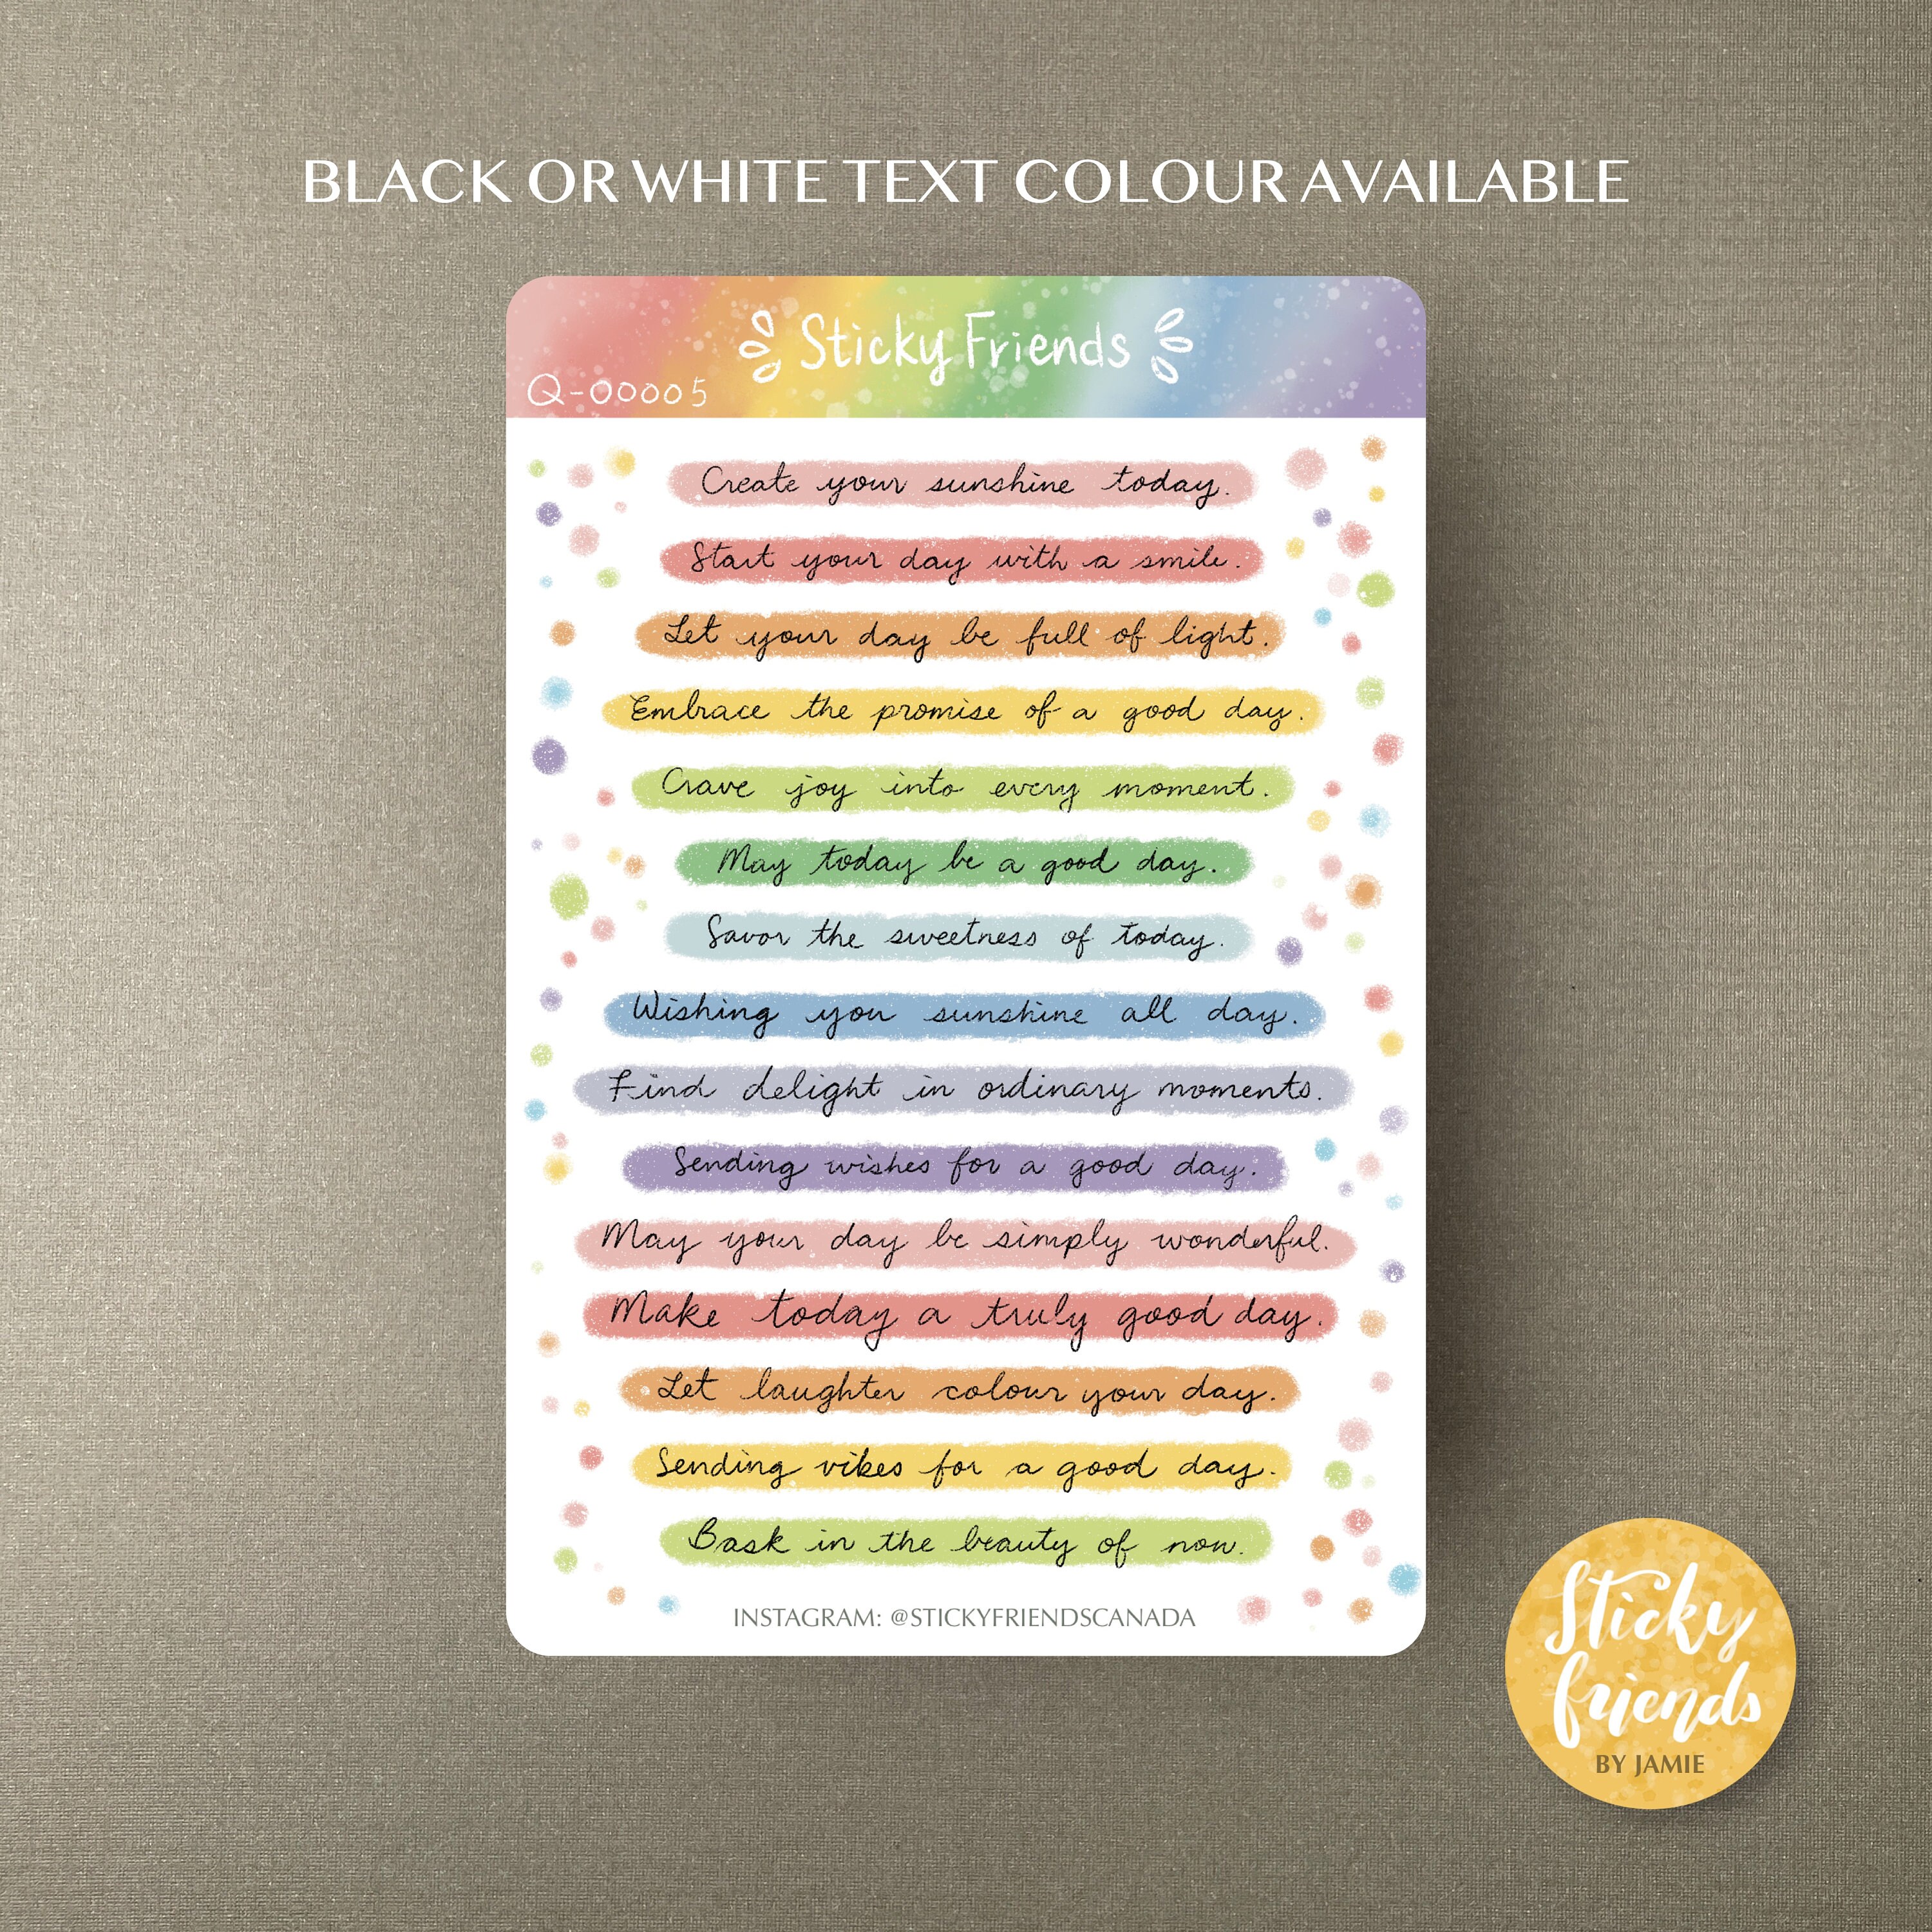 BLACK OR WHITE TEXT COLOUR AVAILABLE
Sticky Friends
Q-00005
Create your sunshine today.
Start your day with a smile.
Let your day be full of light.
Embrace the promise of a good day.
Crave joy into every moment.
May today be a good day.
Savor the sweetness of today.
Wishing you sunshine all day.
Find delight in ordinary moments.
Sending wishes for a good day.
May your day be simply wonderful.
Make today a truly good day.
Let laughter colour your day.
Sending vibes for a good day.
Bask in the beauty of now.
INSTAGRAM: @STICKYFRIENDSCANADA
Sticky
friends
BY JAMIE